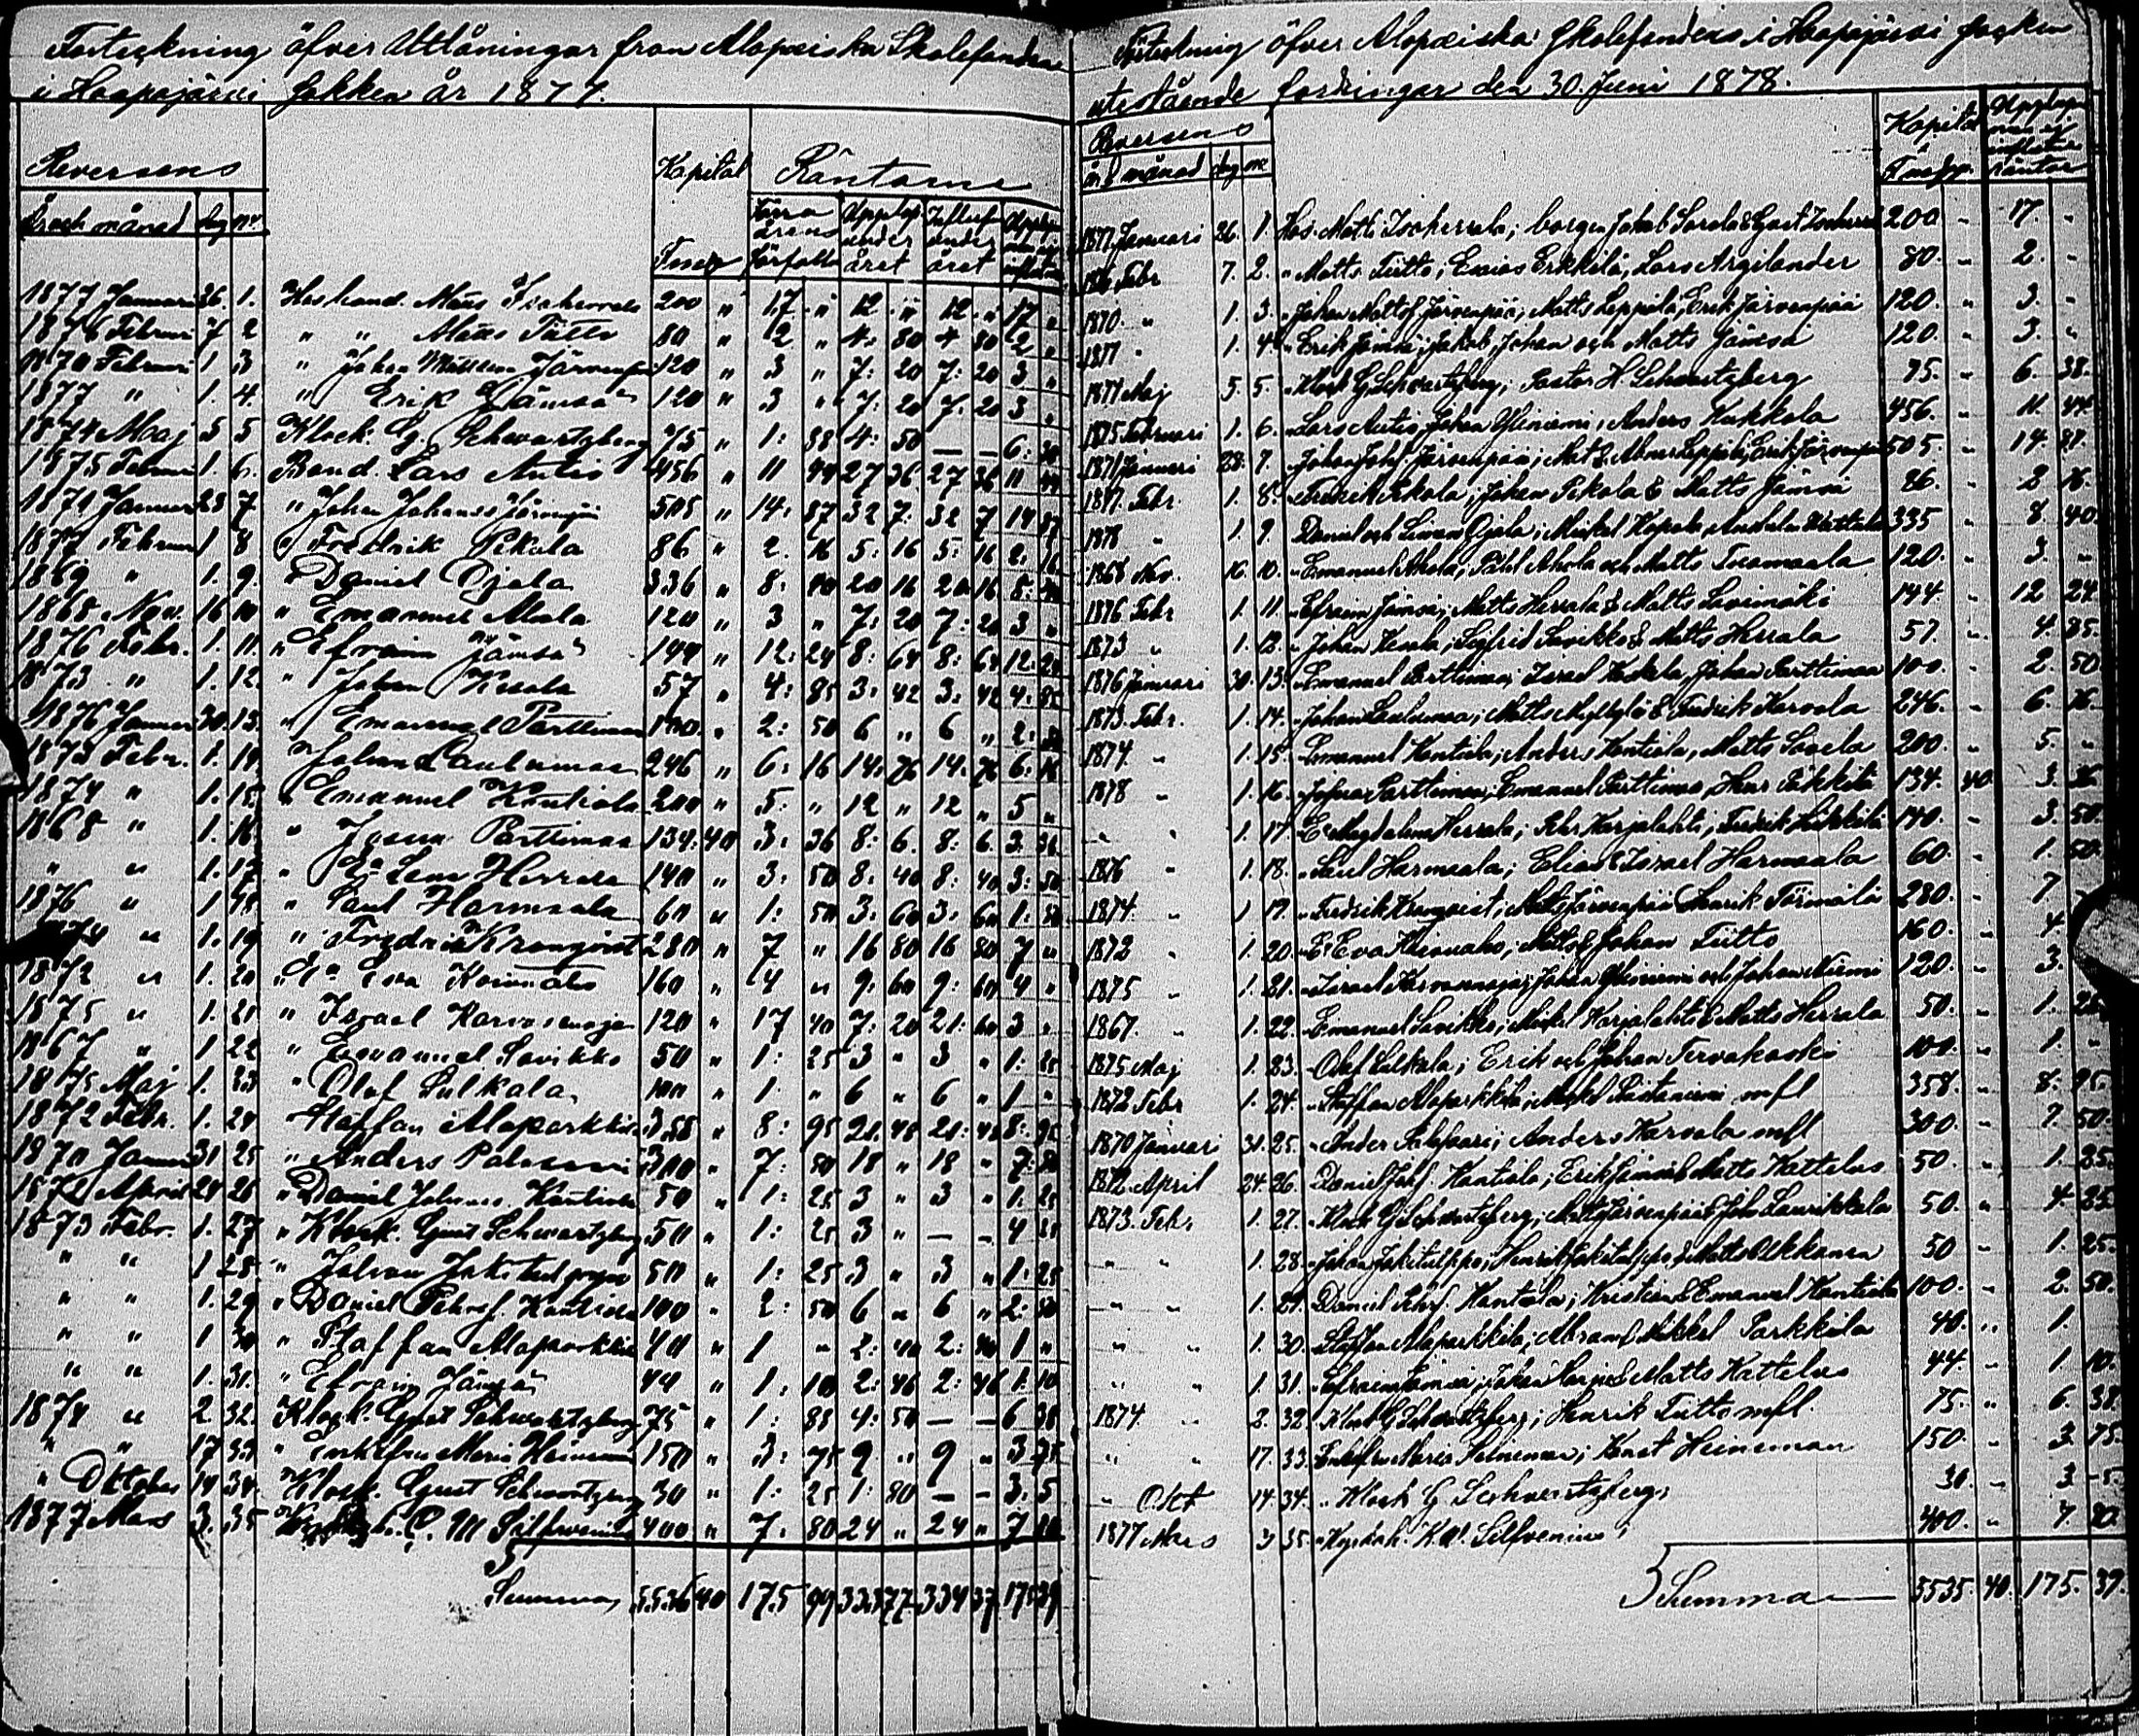 Forteckning öfver Utlåningar från Alopæiska Skolefonden
i Haapajärvi Sokken år 1877.
Reversens Kapital Räntorna
År och månad dag nr. Förra årens förfallna Upplup. under året under året
1877 Januari 26. 1. Husband. Matts Isoherrala 200 " 17. " 12. " 12. " 17 "
1876 Februari 7 2 " " Matts Tiitto 80 " 2 " 4. 80 4 80 2 "
1870 Februari 1 3 " Johan Mattsson Järvenpää 120 " 3 " 7: 20 7: 20 3 "
1877 " 1. 4. " Erik Jämsä 120 " 3 " 7: 20 7. 20 3 "
1874 Maj 5 5 Klock. G. Schwartzberg 75 " 1: 88 4: 50 — — 6: 38
1875 Februari 1. 6. Bond. Lars Autio 456 " 11 44 27 36 27 36 11 44
1871 Januari 28 7 " Johan Johanss Järvenpää 505 " 14: 87 32 7: 32 7 14 87
1877 Februari 1 8 " Fredrik Pekola 86 " 2. 16 5: 16 5: 16 2: 16
1869 " 1. 9. " Daniel Ojala 336 " 8: 40 20 16 20 16 8: 40
1868 Nov. 16 10 " Emanuel Ahola 120 " 3 " 7: 20 7. 20 3 "
1876 Febr. 1. 11. " Efraim Jämsä 144 " 12: 24 8: 64 8: 64 12: 24
1873 " 1. 12. " Johan Kesola 57 " 4: 85 3: 42 3: 42 4: 85
1876 Januar 30. 13. " Emanuel Parttimaa 100. " 2: 50 6 " 6 " 2: 50
1873 Febr. 1. 14. " Johan Laulumaa 246 " 6: 16 14: 76 14: 76 6: 16
1874 " 1. 15. " Emanuel Kantiola 200 " 5: " 12 " 12 " 5 "
1868 " 1. 16. " Josua Parttimaa 134: 40 3: 36 8: 6. 8: 6. 3. 36
" " 1. 17 " Ea Lena Herrala 140 " 3: 50 8: 40 8: 40 3: 50
1876 " 1 18. " Paul Harmaala 60 " 1: 50 3: 60 3: 60 1: 50
1874 " 1. 19 " Fredrik Kronqvist 280 " 7 " 16 80 16 80 7 "
1872 " 1. 20 " Ea Eva Koivuaho 160 " 4 " 9: 60 9: 60 4 "
1875 " 1. 21 " Israel Karvosenoja 120 " 17 40 7: 20 21: 60 3 "
1867 " 1 22 " Emanuel Savikko 50 " 1: 25 3 " 3 " 1: 25
1875 Maj 1. 23 " Olof Lulkala 100 " 1: " 6 " 6 " 1 "
1872 Febr. 1. 24 " Staffan Alaparkkila 358 " 8: 95 21. 48 21: 48 8: 95
1870 Januar 31 25 " Anders Palosaari 300 " 7: 50 18 " 18 " 7: 50
1872 April 24 26 " Daniel Johanss Kantiola 50 " 1: 25 3 " 3 " 1: 25
1873 Febr. 1. 27 " Klock. Gust Schwartzberg 50 " 1: 25 3 " — — 4 25
" " 1 28 " Johan Jokitulppo 50 " 1: 25 3 " 3 " 1: 25
" " 1. 29 " Daniel Pehrsf. Kantiola 100 " 2: 50 6 " 6 " 2: 50
" " 1 30 " Staffan Alaparkkila 40 " 1 " 2: 40 2: 40 1 "
" " 1. 31. " Efraim Jämsä 44 " 1: 10 2: 46 2: 46 1: 10
1874 " 2. 32. Klock. Gust Schwartzberg 75 " 1: 88 4: 50 — — 6 38
" " 17 33 " Enkefru Maria Heineman 150 " 3: 75 9 " 9 " 3 75
" Oktober 14 34. " Klock. Gust Schwartzberg 30 " 1: 25 1: 80 — — 3: 5
1877 Mars 3. 35 400 " 7. 80 24 " 24 " 7 80
Summa 5536 40 175 99 333 77 334 37 175 39
Förteckning öfver Alopæiska Skolefondens i Haapajärvi socken
utestående fordringar den 30. Juni 1878.
Reversens Kapital
år & månad dag nr räntor
1877 Januari 26. 1. Hus. Matts Isoherrala; borgen Jakob Sorola & Gust Isoherrala 200 " 17. "
1876 Febr 7. 2. " Matts Tiitto, Esaias Erkkilä, Lars Argilander 80. " 2. "
1870. " 1. 3. " Johan Mattsf Järvenpää, Matts Leppälä, Erik Järvenpää 120. " 3. "
1877 " 1. 4. " Erik Jämsä; Jakob, Johan och Matts Jämsä 120. " 3. "
1874 Maj 5. 5. " Klock G Schwartzberg; Pastor H. Schwartzberg 75. " 6. 38.
1875 Februari 1. 6. " Lars Autio, Johan Yliniemi, Anders Kukkola 456. " 11. 44.
1871 Januari 28. 7. " Johan Johsf Järvenpää; Erik Järvenpää 505. " 14. 87.
1877. Febr. 1. 8. " Fredrik Pekola, Johan Pekola & Matts Jämsä 86. " 2 16.
1878 " 1. 9. " Daniel och Simon Ojala; 335 " 8. 40.
1868 Nov. 16. 10. " Emanuel Ahola, Pehl Ahola och Matts Tuomaala 120. " 3. "
1876 Febr 1. 11. " Efraim Jämsä, Matts Herrala & Matts Savimäki 144. " 12 24.
1873 " 1. 12. " Johan Kesola, Segfrid Savikko & Matts Herrala 57. " 4. 85.
1876 Januari 30. 13. " Emanuel Parttimaa, Israel Koskela, Johan Parttimaa 100. " 2. 50
1873. Febr. 1. 14. " Johan Laulumaa; Matts Myllylä & Fredrik Karvola 246. " 6. 16.
1874. " 1. 15. " Emanuel Kantiola, Anders Kantiola, Matts Savela 200. " 5. "
1878 " 1. 16. " Josua Parttimaa, Emanuel Parttimaa, 134. 40 3. 36
" " 1. 17. " Ea Magdalena Herrala; Pehr Karjalahti, Fredrik 140. " 3. 50.
1876 " 1. 18. " Paul Harmaala; Elias & Israel Harmaala 60. " 1. 50.
1874. " 1 19. " Fredrik Kronqvist, Matts Järvenpää, Henrik Törmälä 280. " 7.
1872 " 1. 20. " Ea Eva Koivuaho; Matts & Johan Tiitto 160. " 4.
1875 " 1. 21. " Israel Karvosenoja; Johan Yliniemi och Johan Niemi 120. " 3.
1867. " 1. 22. " Emanuel Savikko; Mickel Karjalahti & Matts Herrala 50. " 1. 25.
1875 Maj 1. 23. " Olof Lulkala; Erik och Johan Tervakoski 100. " 1. "
1872 Febr 1. 24. " Staffan Alaparkkila, mfl 358. " 8. 95.
1870 Januari 31. 25. " Ander Palosaari; Anders Karvola mfl 300. " 7. 50.
1872 April 24. 26. Daniel Johsf. Kantiola; Erik Jämsä & Matts Kattelus 50. " 1. 25.
1873. Febr. 1. 27. " Klock G Schwartzberg, Matts Järvenpää & Johan Laurikkala 50. " 4. 25.
" " 1. 28. " Johan Jokitulppo; Henrik Jokitulppo, & Matts Ulkkanen 50 " 1. 25.
" " 1. 29. Daniel Pehrsf. Kantiola; Kristian & Emanuel Kantiola 100. " 2. 50.
" " 1. 30. Staffan Alaparkkila; Abram & Mikkel Parkkila 40. " 1.
" " 1 31. " Efraim Jämsä; & Matts Kattelus 44. " 1 10.
1874. " 2. 32. " Klock G Schwartzberg; Henrik Tiitto mfl 75. " 6. 38.
" " 17. 33. Enkefru Maria Heineman; Knut Heineman 150. " 3. 75.
" Okt 14. 34. " Klock G Schwartzberg; 30. " 3 5
1877 Mars 3 35. 400. " 7. 80.
Summa 5535. 40. 175. 39.